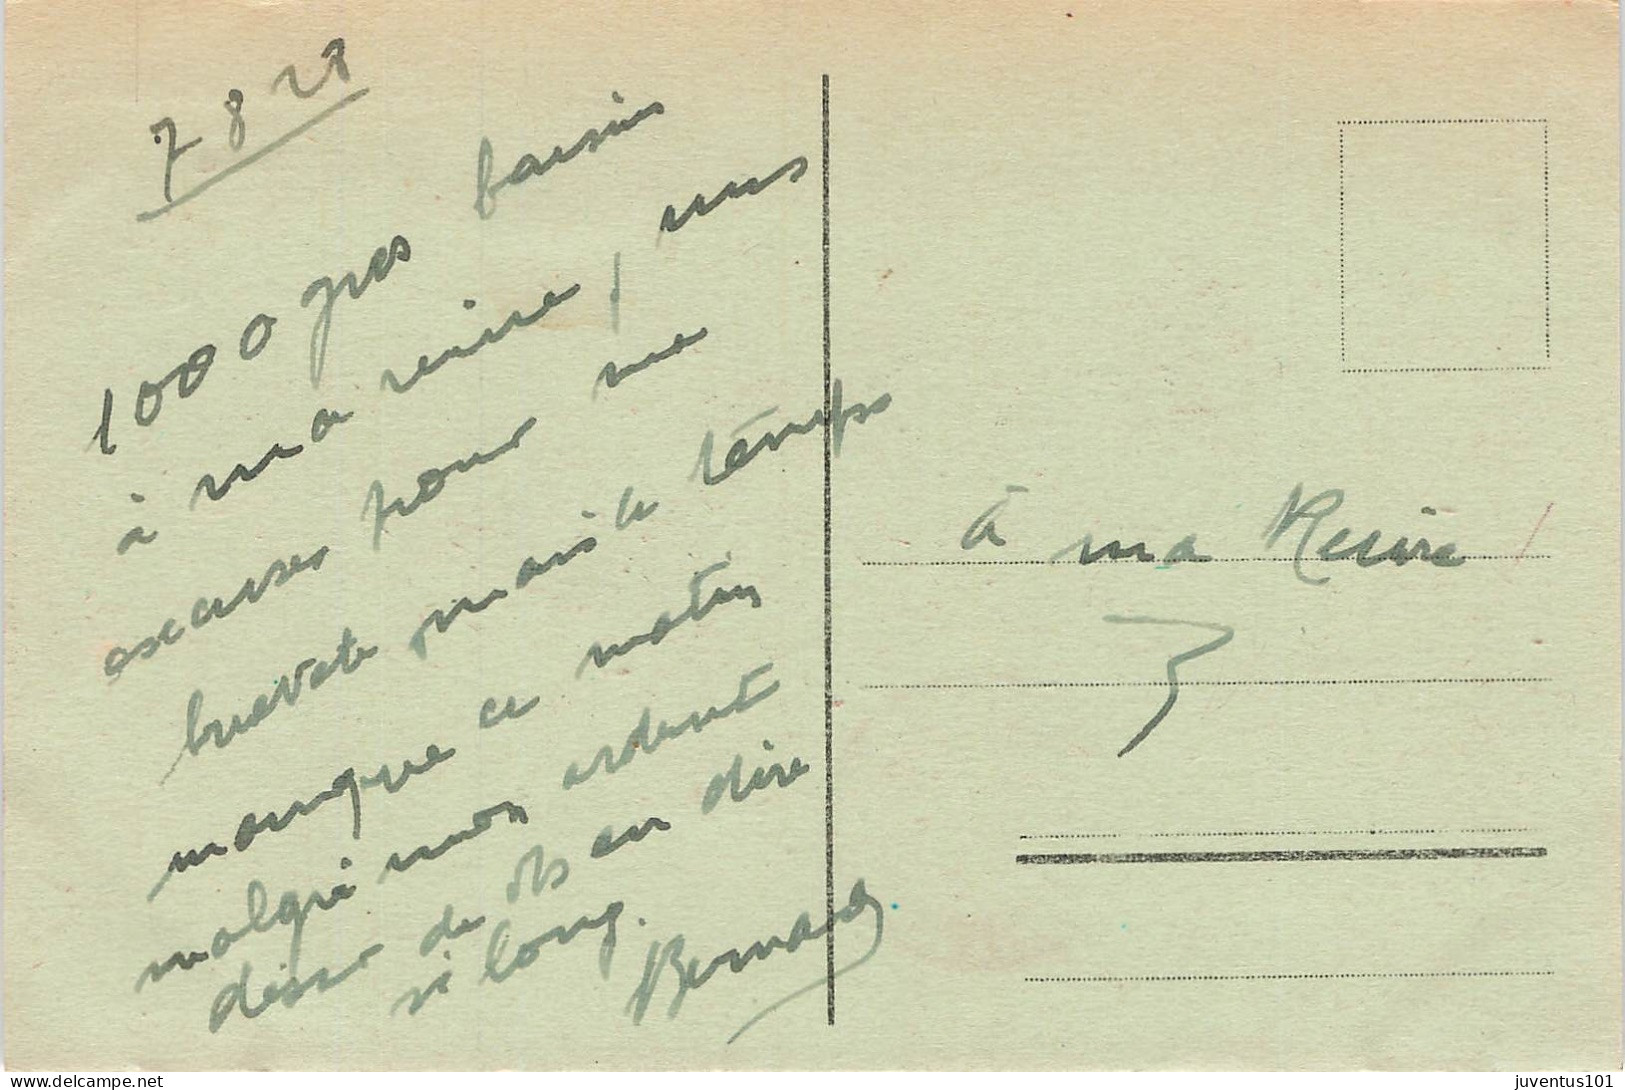 7 8 28
1000 gros baisers
à ma reine, mes
excuses pour ma
brieveté mais le temps
manque ce matin
malgré mon ardent
désir de t'en dire
si long.
Bernard
à ma Reine
juventus101